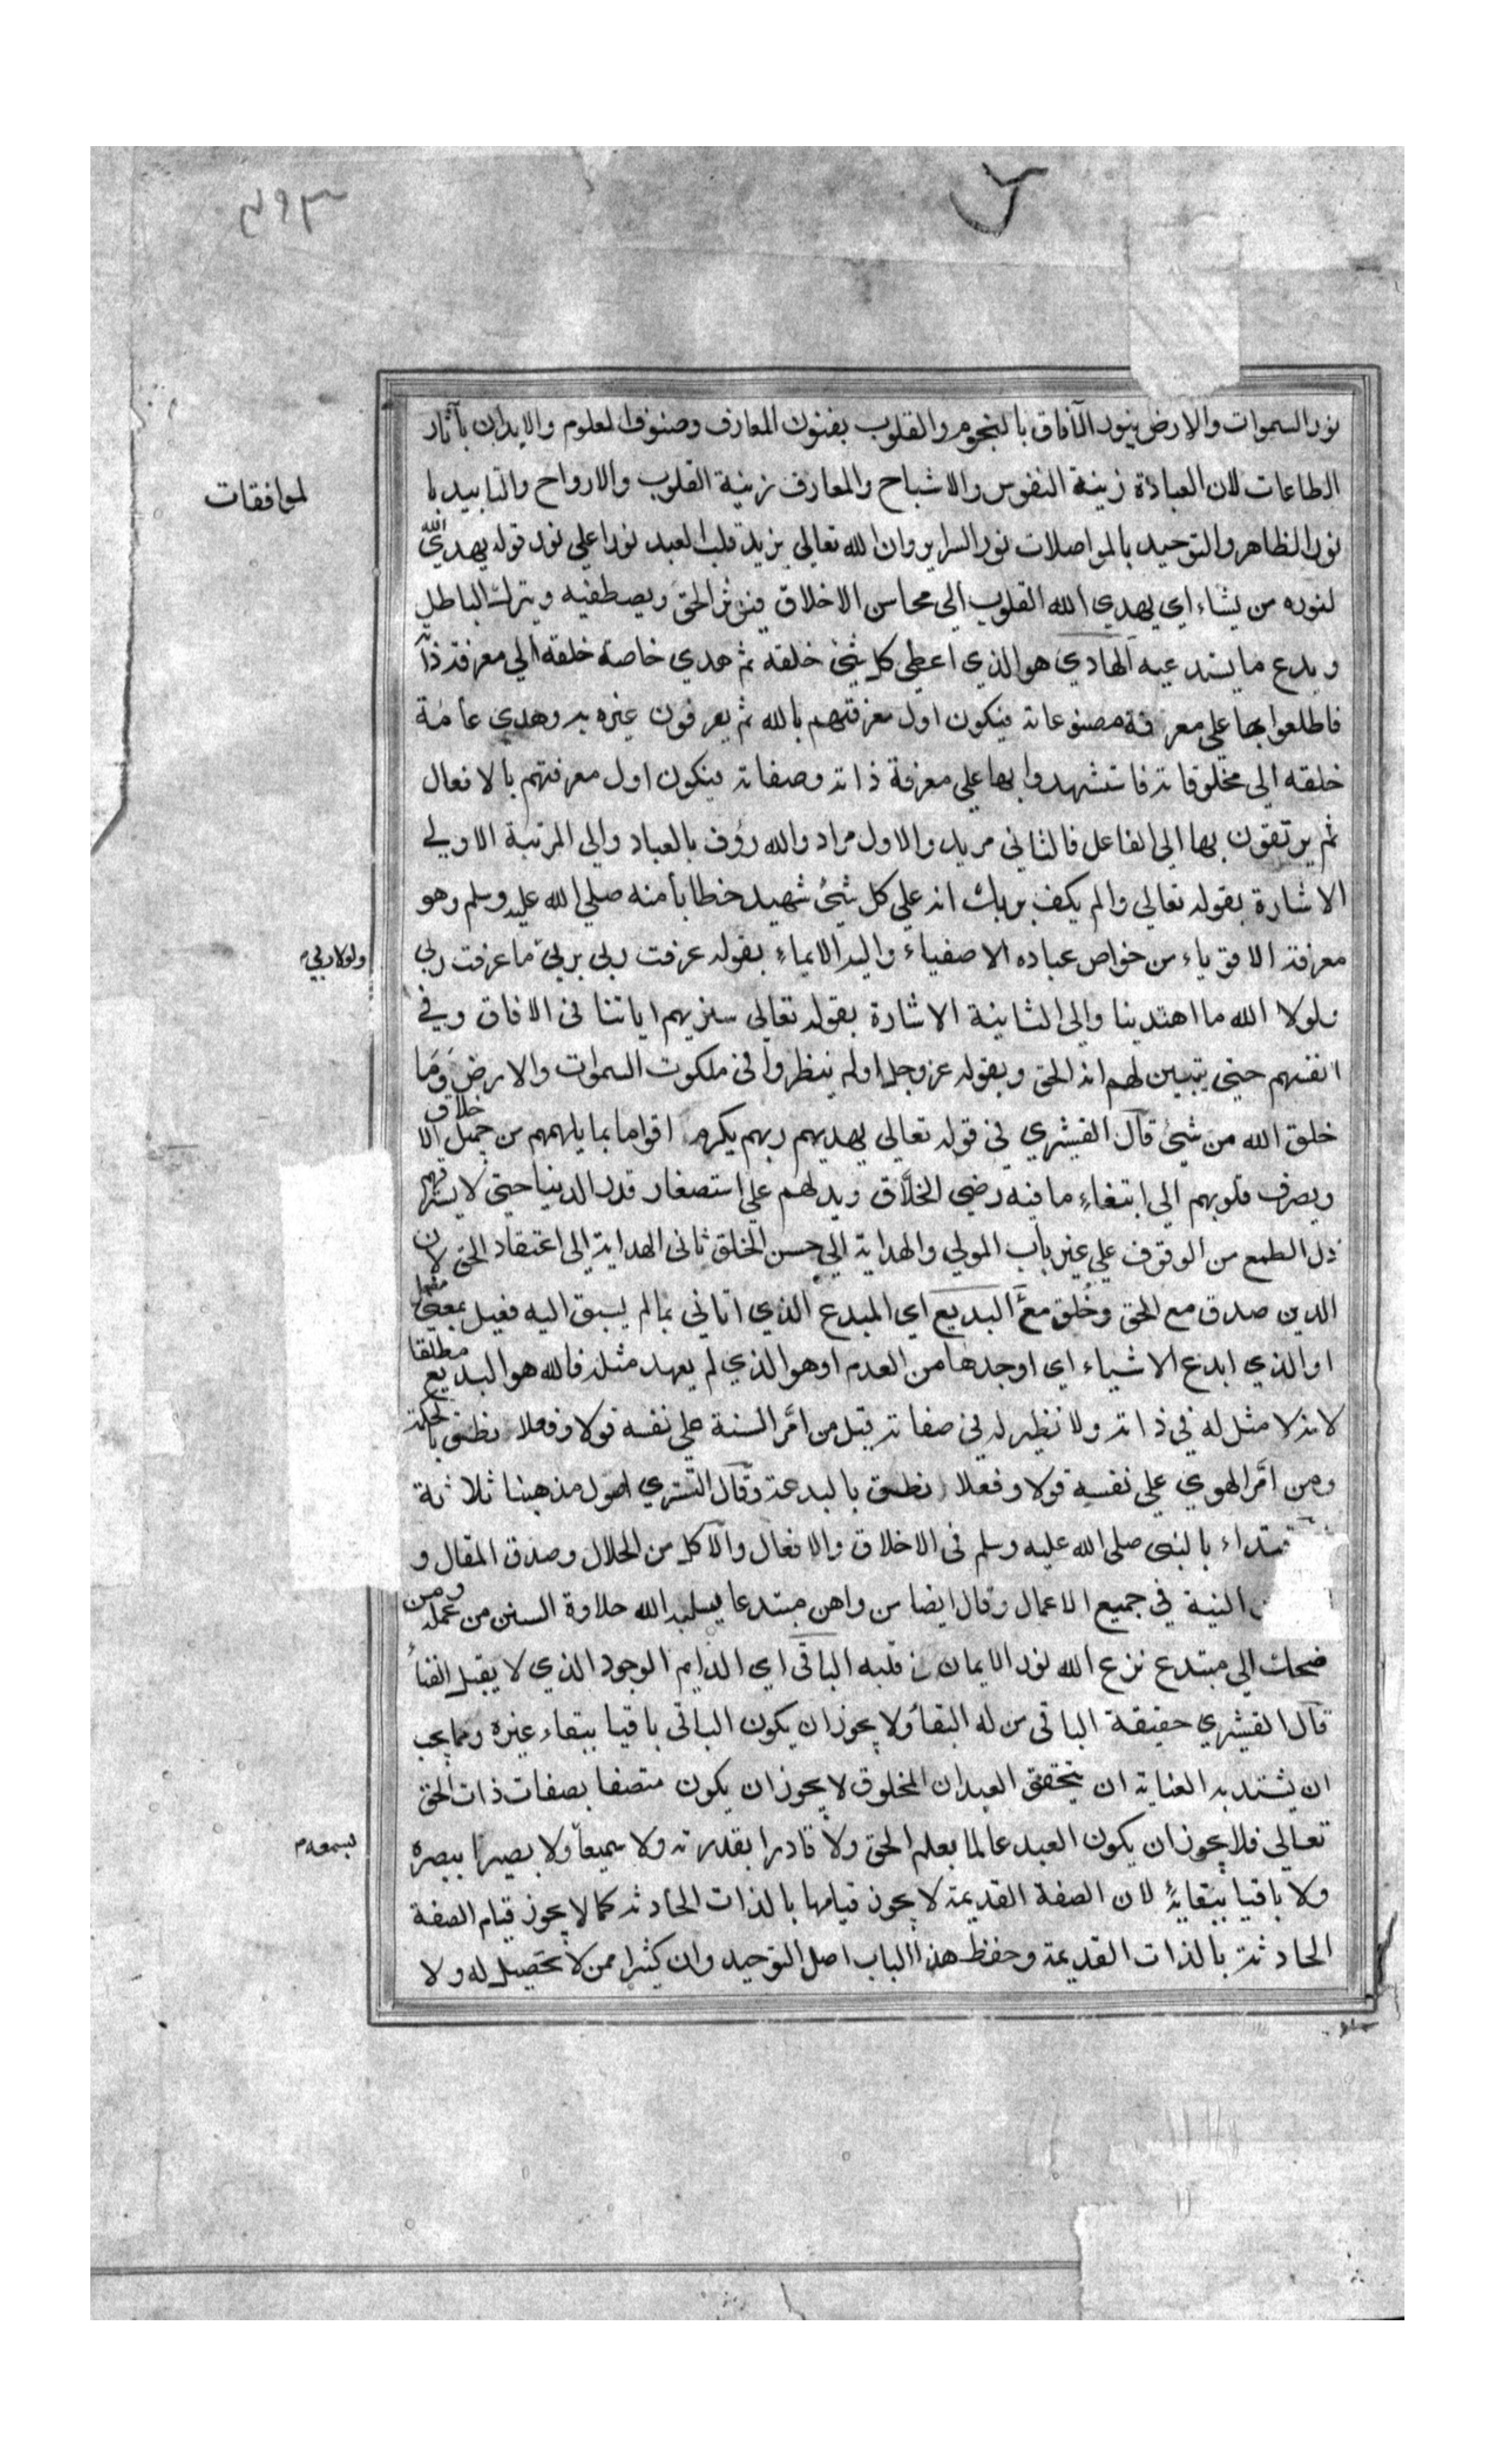 ٣٩٣
نور السموات والارض ينور الآفاق بالنجوم والقلوب بفنون المعارف وصنوف العلوم والابدان بآثار
الطاعات لان العبادة زينة النفوس والاشباح والمعارف زينة القلوب والارواح والتاييد با
لموافقات
نور الظاهر والتوحيد بالمواصلات نور السراير وان الله تعالي يزيد قلب العبد نورا علي نور قوله يهدي الله
لنوره من يشاء اي يهدي الله القلوب الي محاسن الاخلاق فيؤثر الحق ويصطفيه ويترك الباطل
ويدع ما يستدعيه الهادي هو الذي اعطي كل شئ خلقه ثم هدي خاصة خلقه الي معرفة ذا
فاطلعوا بها علي معرفة مصنوعاته فيكون اول معرفتهم بالله ثم يعرفون غيره به وهدي عامة
خلقه الي مخلوقاته فاستشهدوا بها علي معرفة ذاته وصفاته فيكون اول معرفتهم بالافعال
ثم يرتقون بها الي الفاعل فالثاني مريد والاول مراد والله رؤف بالعباد والي المرتبة الاولي
الاشارة بقوله تعالي والم يكف بربك انه علي كل شئ شهيد خطابا منه صلي الله عليه وسلم وهو
معرفة الاقوياء من خواص عباده الاصفياء واليه الايماء بقوله عرفت ربي بربي ما عرفت ربي
ولولا ربي
ولولا الله ما اهتدينا والي الثانية الاشارة بقوله تعالي سنريهم اياتنا في الافاق وفي
انفسهم حتي يتبين لهم انه الحق وبقوله عز وجل اولم ينظروا في ملكوت السموات والارض وما
خلق الله من شئ قال القشيري في قوله تعالي يهديهم ربهم يكرم اقواما بما يلهمهم من جميل الاخلاق
ويصرف قلوبهم الي ابتغاء ما فيه رضي الخلاق ويدلهم علي استصغار قدر الدنيا حتي لا يسترقهم
ذل الطمع من الوقوف علي غير باب المولي والهداية الي حسن الخلق ثاني الهداية الي اعتقاد الحق لان
الدين صدق مع الحق وخلق مع البديع اي المبدع الذي اتاني بمالم يسبق اليه فعيل بمعني مفعل
او الذي ابدع الاشياء اي اوجدها من العدم او هو الذي لم يعهد مثله فالله هو البديع مطلقا
لانه لا مثل له في ذاته ولا نظير له في صفاته قيل من امّر السنة علي نفسه قولا وفعلا نطق بالحكمة
ومن امّر الهوي علي نفسه قولا وفعلا نطق بالبدعة وقال التستري اصول مذهبنا ثلاثة
قتداء بالنبي صلي الله عليه وسلم في الاخلاق والافعال والاكل من الحلال وصدق المقال و
النية في جميع الاعمال وقال ايضا من واهن مبتدعا يسلبه الله حلاوة السنن من عمله ومن
ضحك الي مبتدع نزع الله نور الايمان من قلبه الباقي اي الدايم الوجود الذي لا يقبل الفناء
قال القشيري حقيقة الباقي من له البقاء ولا يجوز ان يكون الباقي باقيا ببقاء غيره ومما يجب
ان يشتد به العناية ان يتحقق العبد ان المخلوق لا يجوز ان يكون متصفا بصفات ذات الحق
تعالي فلا يجوز ان يكون العبد عالما بعلم الحق ولا قادرا بقدرته ولا سميعا ولا بصيرا ببصره
بسمعه
ولا باقيا ببقائه لان الصفة القديمة لا يجوز قيامها بالذات الحادثه كما لا يجوز قيام الصفة
الحادثة بالذات القديمة وحفظ هذا الباب اصل التوحيد وان كثيرا ممن لا تحصيل له ولا